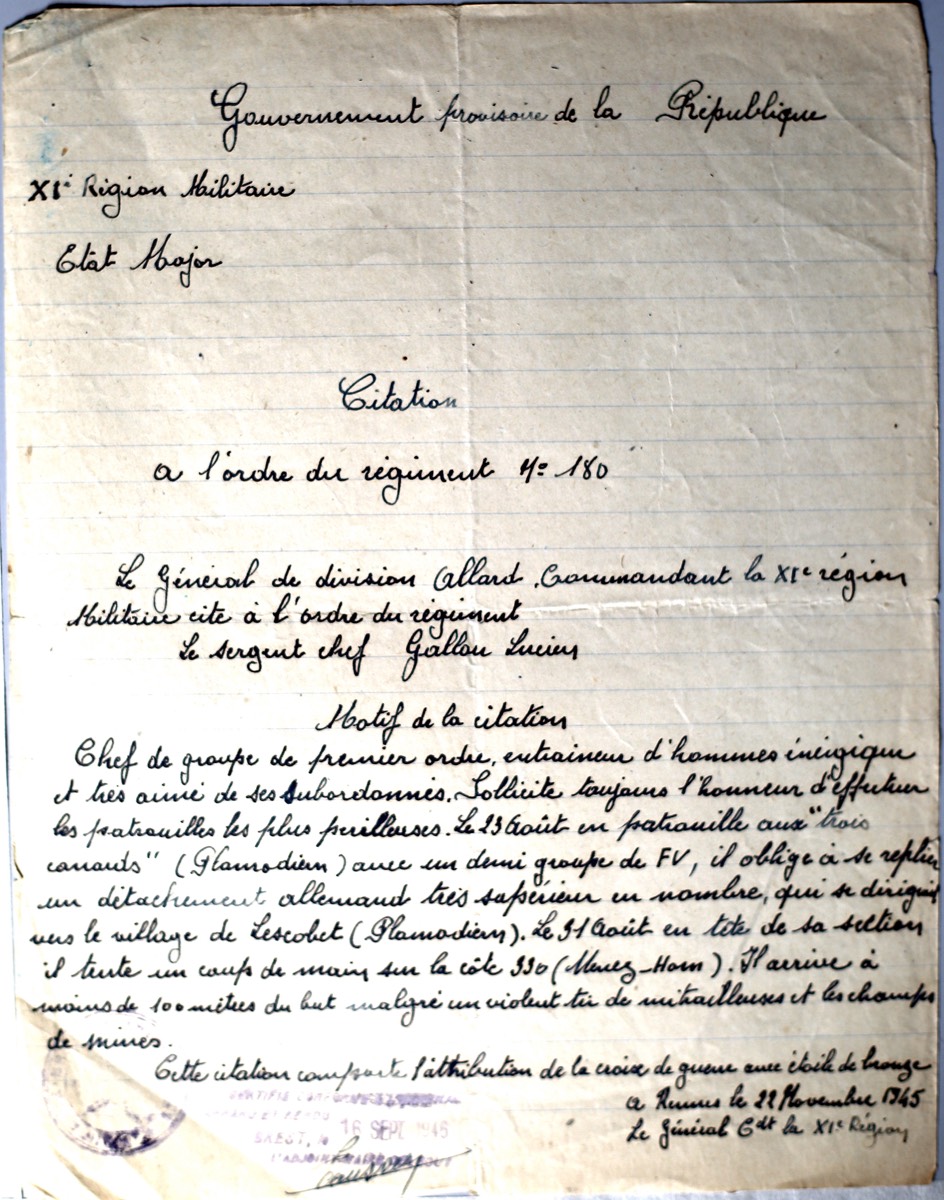 Gouvernement provisoire de la République
XIe Région Militaire
Etat Major
Citation
a l'ordre du régiment No 180
Le Général de division Allard, Commandant la XIe région
Militaire cite à l'ordre du régiment
Le sergent chef Gallou Lucien
Motif de la citation
Chef de groupe de premier ordre, entraineur d'hommes énergique
et très aimé de ses subordonnés. Sollicite toujours l'honneur d'effectuer
les patrouilles les plus perilleuses. Le 23 Août en patrouille aux "trois
canards" (Plamodiern) avec un demi groupe de FV, il oblige à se replier
un détachement allemand très supérieur en nombre, qui se dirigeait
vers le village de Lescobet (Plamodiern). Le 31 Août en tête de sa section
il tente un coup de main sur la côte 330 (Menez-Hom). Il arrive à
moins de 100 mètres du but malgré un violent tir de mitrailleuses et les champs
de mines.
Cette citation comporte l'attribution de la croix de guerre avec étoile de bronze
a Rennes le 22 Novembre 1945
Le Général Cdt la XIe Région
CERTIFIE CONFORME
BREST, le 16 SEPT 1946